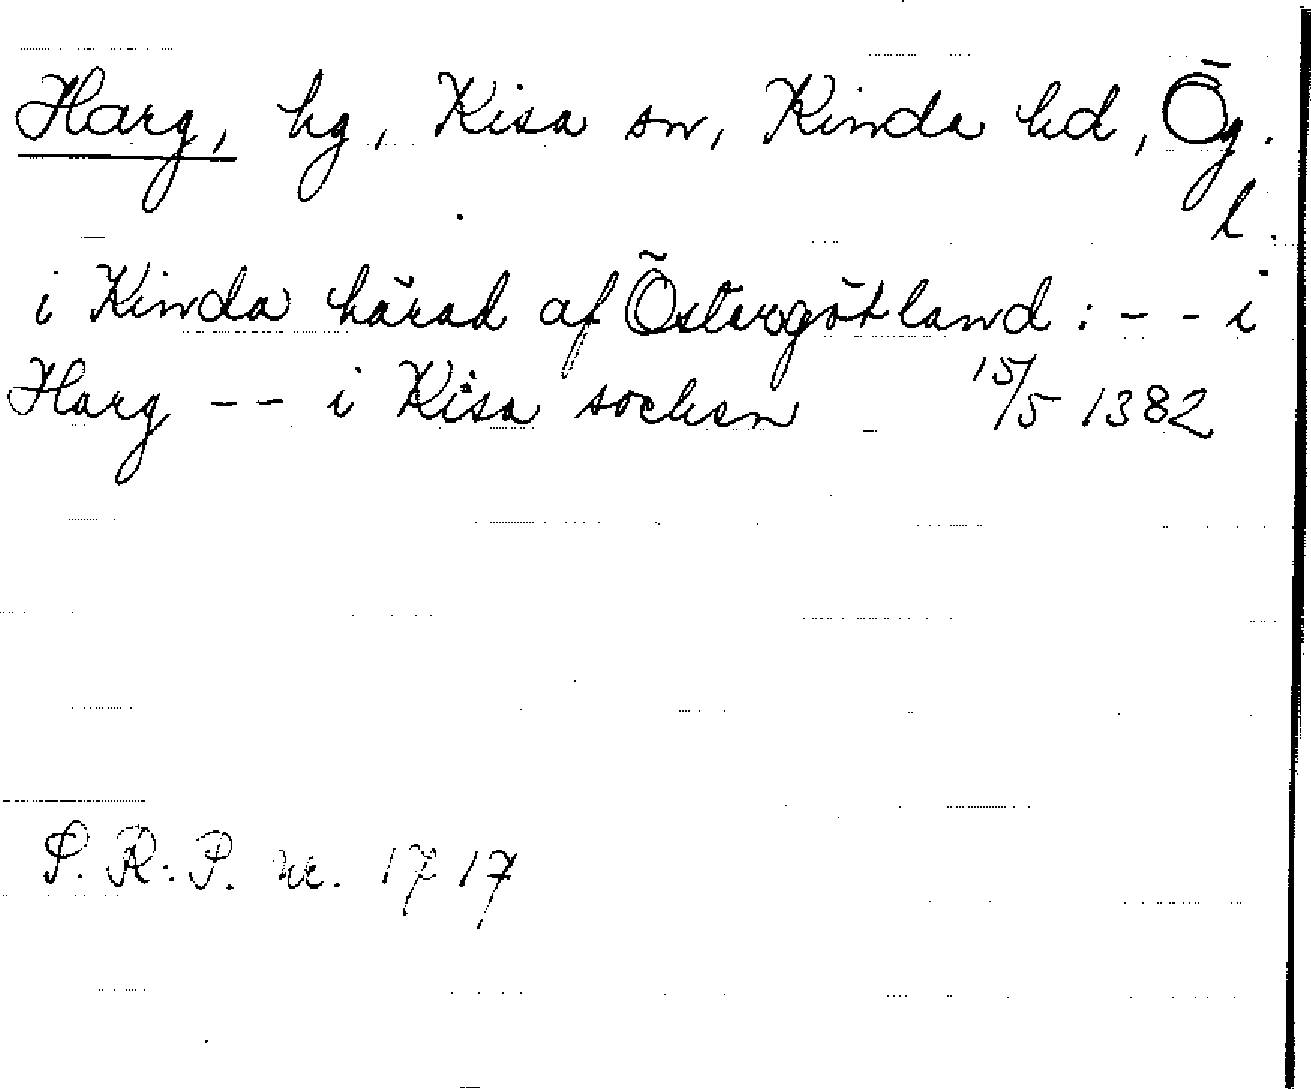 Harg, hg, Kisa sn, Kinda hd, Ög.
l.
i Kinda härad af Östergötland: -- i
Harg -- i Kisa socken 15/5 1382
S.R.P. nr. 1717